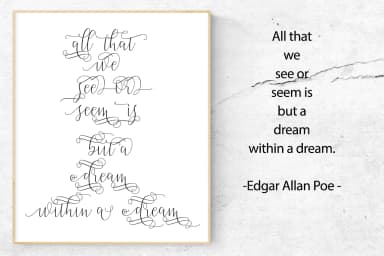 all that
we
see or
seem is
but a
dream
within a dream
All that
we
see or
seem is
but a
dream
within a dream.
-Edgar Allan Poe -